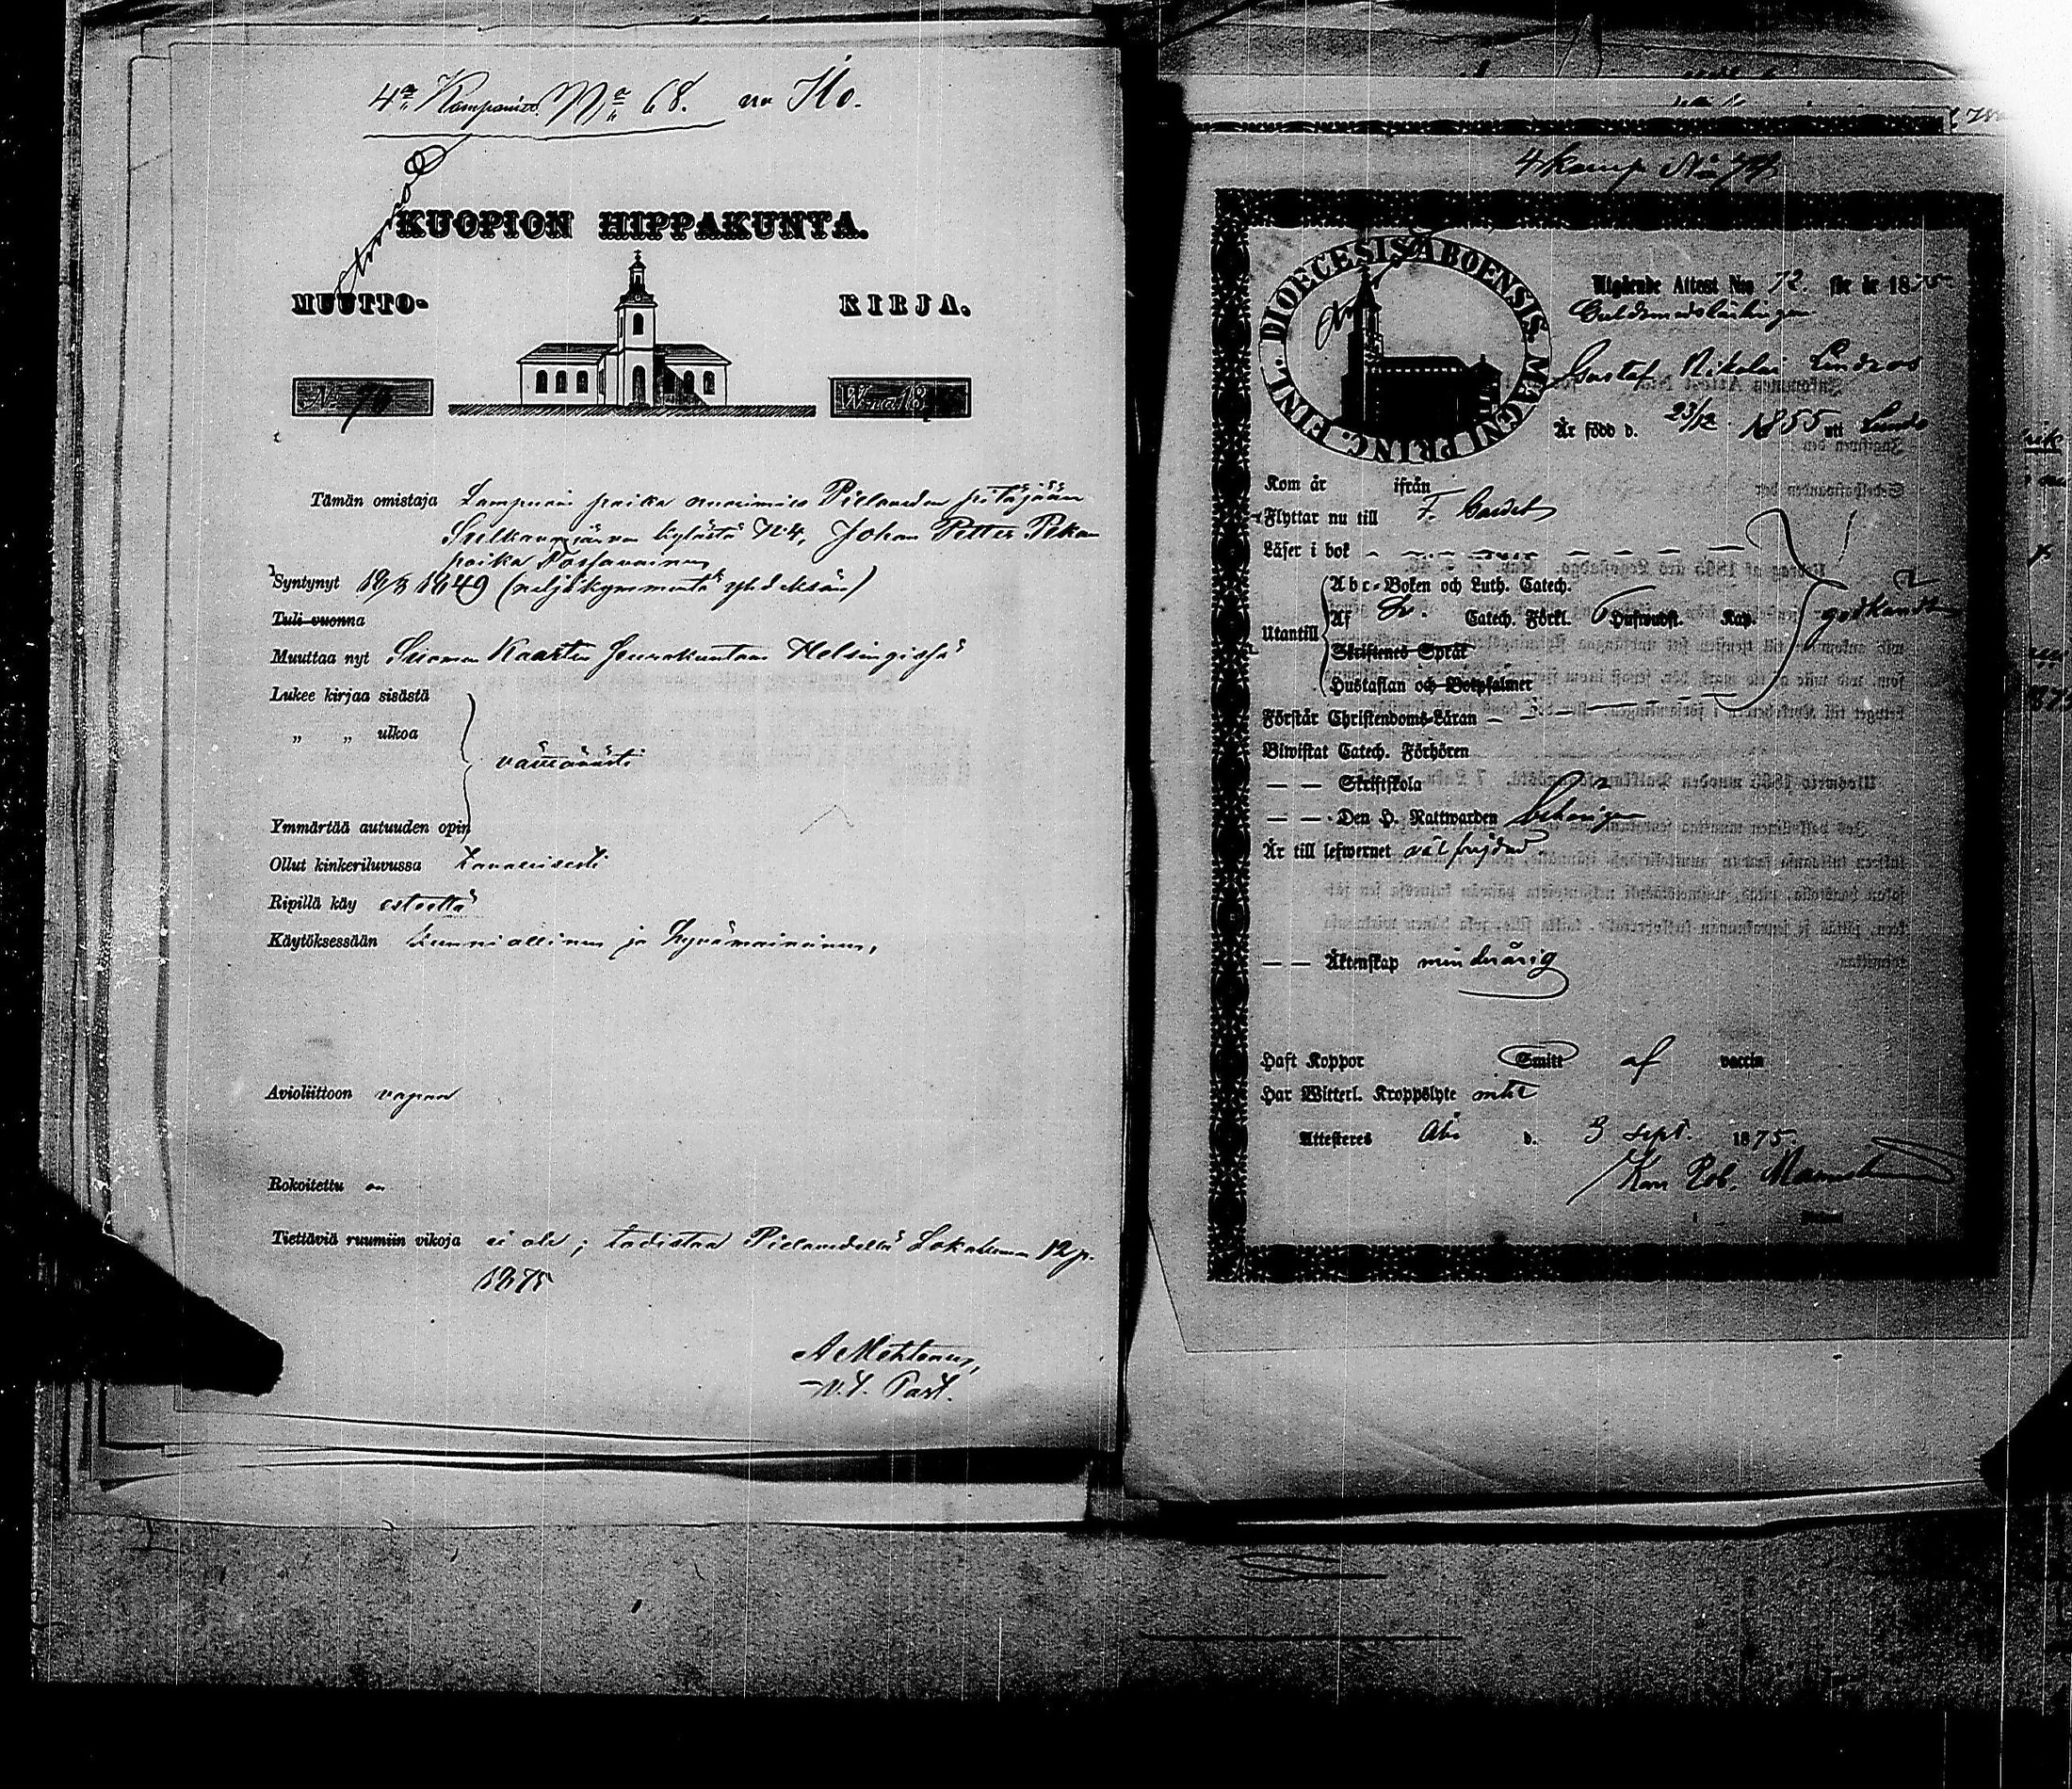 4de Kompaniet. No 68. nro 110.
KUOPION HIPPAKUNTA.
MUUTTO-KIRJA.
No W:na 18
Tämän omistaja Lampuori poika nuorimies Pielaveden pitäjään
kylästä No 4, Johan Petter Pekan
poika Tossavainen
Syntynyt 18/3 1849 (neljäkymmentä yhdeksän)
Tuli vuonna
Muuttaa nyt Suomen Kaartin Seurakuntaan Helsingissä
Lukee kirjaa sisästä
„ „ ulkoa
välttävästi
Ymmärtää autuuden opin
Ollut kinkeriluvussa tavallisesti
Ripillä käy esteettä
Käytöksessään kunniallinen ja hyvämaininen,
Avioliittoon vapaa
Rokoitettu on
Tiettäviä ruumiin vikoja ei ole ; todistaa Pielavedellä Lokakuun 12 p.
1875
V.T. Past.
4 Komp No
FINL. DIOECESIS ABOENSIS. MAGNI PRINC.
Utgående Attest Nro 72. för år 1875
Guldsmedslärlingen
Gustaf Nikolai Lindros
Är född d. 23/12 1855 uti Lundo
Kom år ifrån
Flyttar nu till F. Gardet
Läser i bok
Abc-Boken och Luth. Catech.
Utantill Af Sv. Catech. Förkl. Hufwudst. Kap. godkändt
Skriftenes Språk
Hustaflan och Botpsalmer
Förstår Christendoms-Läran
Biwistat Catech. Förhören
— — Skriftskola
— — Den H. Nattwarden behörigen
Är till lefwernet väl frejdad
— — Äktenskap minderårig
Haft Koppor Smitt af vaccin
Har Witterl. Kroppslyte intet
Attesteres Åbo d. 3 Sept. 1875.